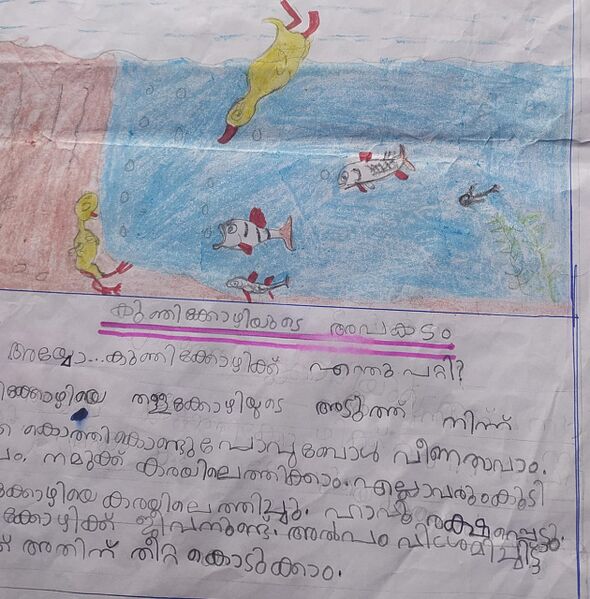 കുഞ്ഞിക്കോഴിയുടെ അപകടം
അയ്യോ...കുഞ്ഞിക്കോഴിക്ക് എന്തു പറ്റി?
ക്കോഴിയെ തള്ളക്കോഴിയുടെ അടുത്ത് നിന്ന്
കൊത്തികൊണ്ടുപോവുമ്പോൾ വീണതാവാം.
നമുക്ക് കരയിലെത്തിക്കാം. എല്ലാവരുംകൂടി
ക്കോഴിയെ കരയിലെത്തിച്ചു. ഹാവൂ രക്ഷപ്പെട്ടു.
ക്കോഴിക്ക് ജീവനുണ്ട്. അൽപം വിശ്രമിച്ചിട്ട്
അതിന് തീറ്റ കൊടുക്കാം.